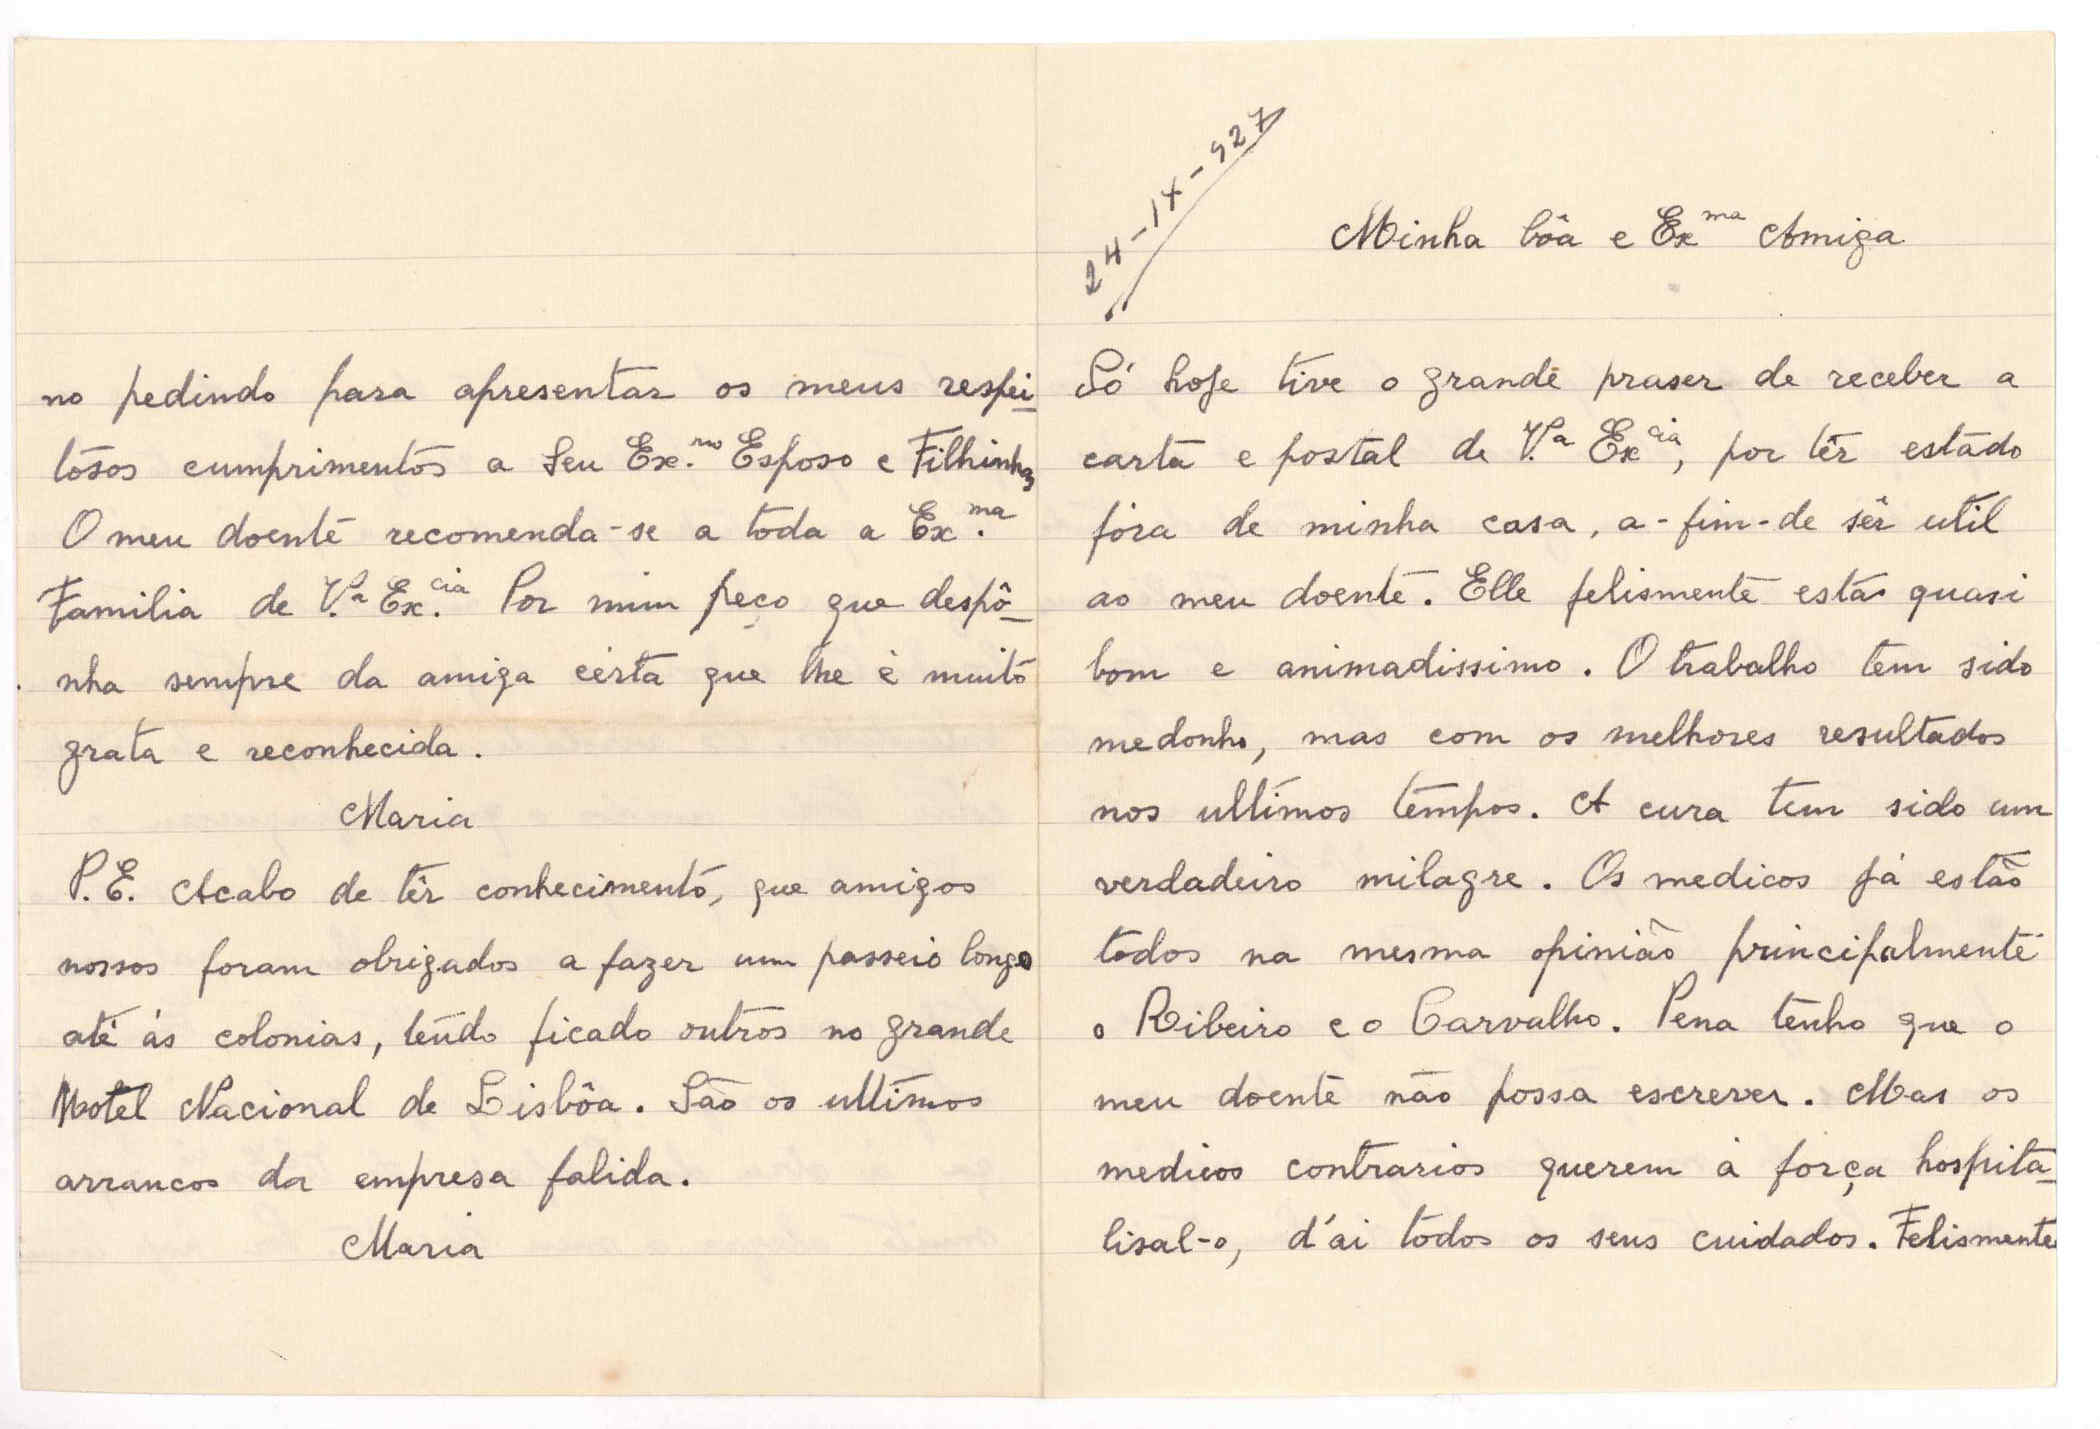 24-IX-927
Minha bôa e Ex.ma Amiga
Só hoje tive o grande praser de receber a
carta e postal de V.a Ex.cia, por têr estado
fóra de minha casa, a-fim-de sêr util
ao meu doente. Elle felismente está quasi
bom e animadissimo. O trabalho tem sido
medonho, mas com os melhores resultados
nos ultimos tempos. A cura tem sido um
verdadeiro milagre. Os medicos já estão
todos na mesma opinião principalmente
o Ribeiro e o Carvalho. Pena tenho que o
meu doente não possa escrever. Mas os
medicos contrarios querem á força hospita-
lisal-o, d'ai todos os seus cuidados. Felismente
no pedindo para apresentar os meus respei-
tósos cumprimentos a Seu Ex.mo Esposo e Filhinhos
O meu doente recomenda-se a toda a Ex.ma
Familia de V.a Ex.cia Por mim peço que despô-
nha sempre da amiga cérta que lhe é muito
grata e reconhecida.
Maria
P.E. Acabo de têr conhecimento, que amigos
nossos foram obrigados a fazer um passeio longo
até ás colonias, tendo ficado outros no grande
Hotel Nacional de Lisbôa. São os ultimos
arrancos da empresa falida.
Maria